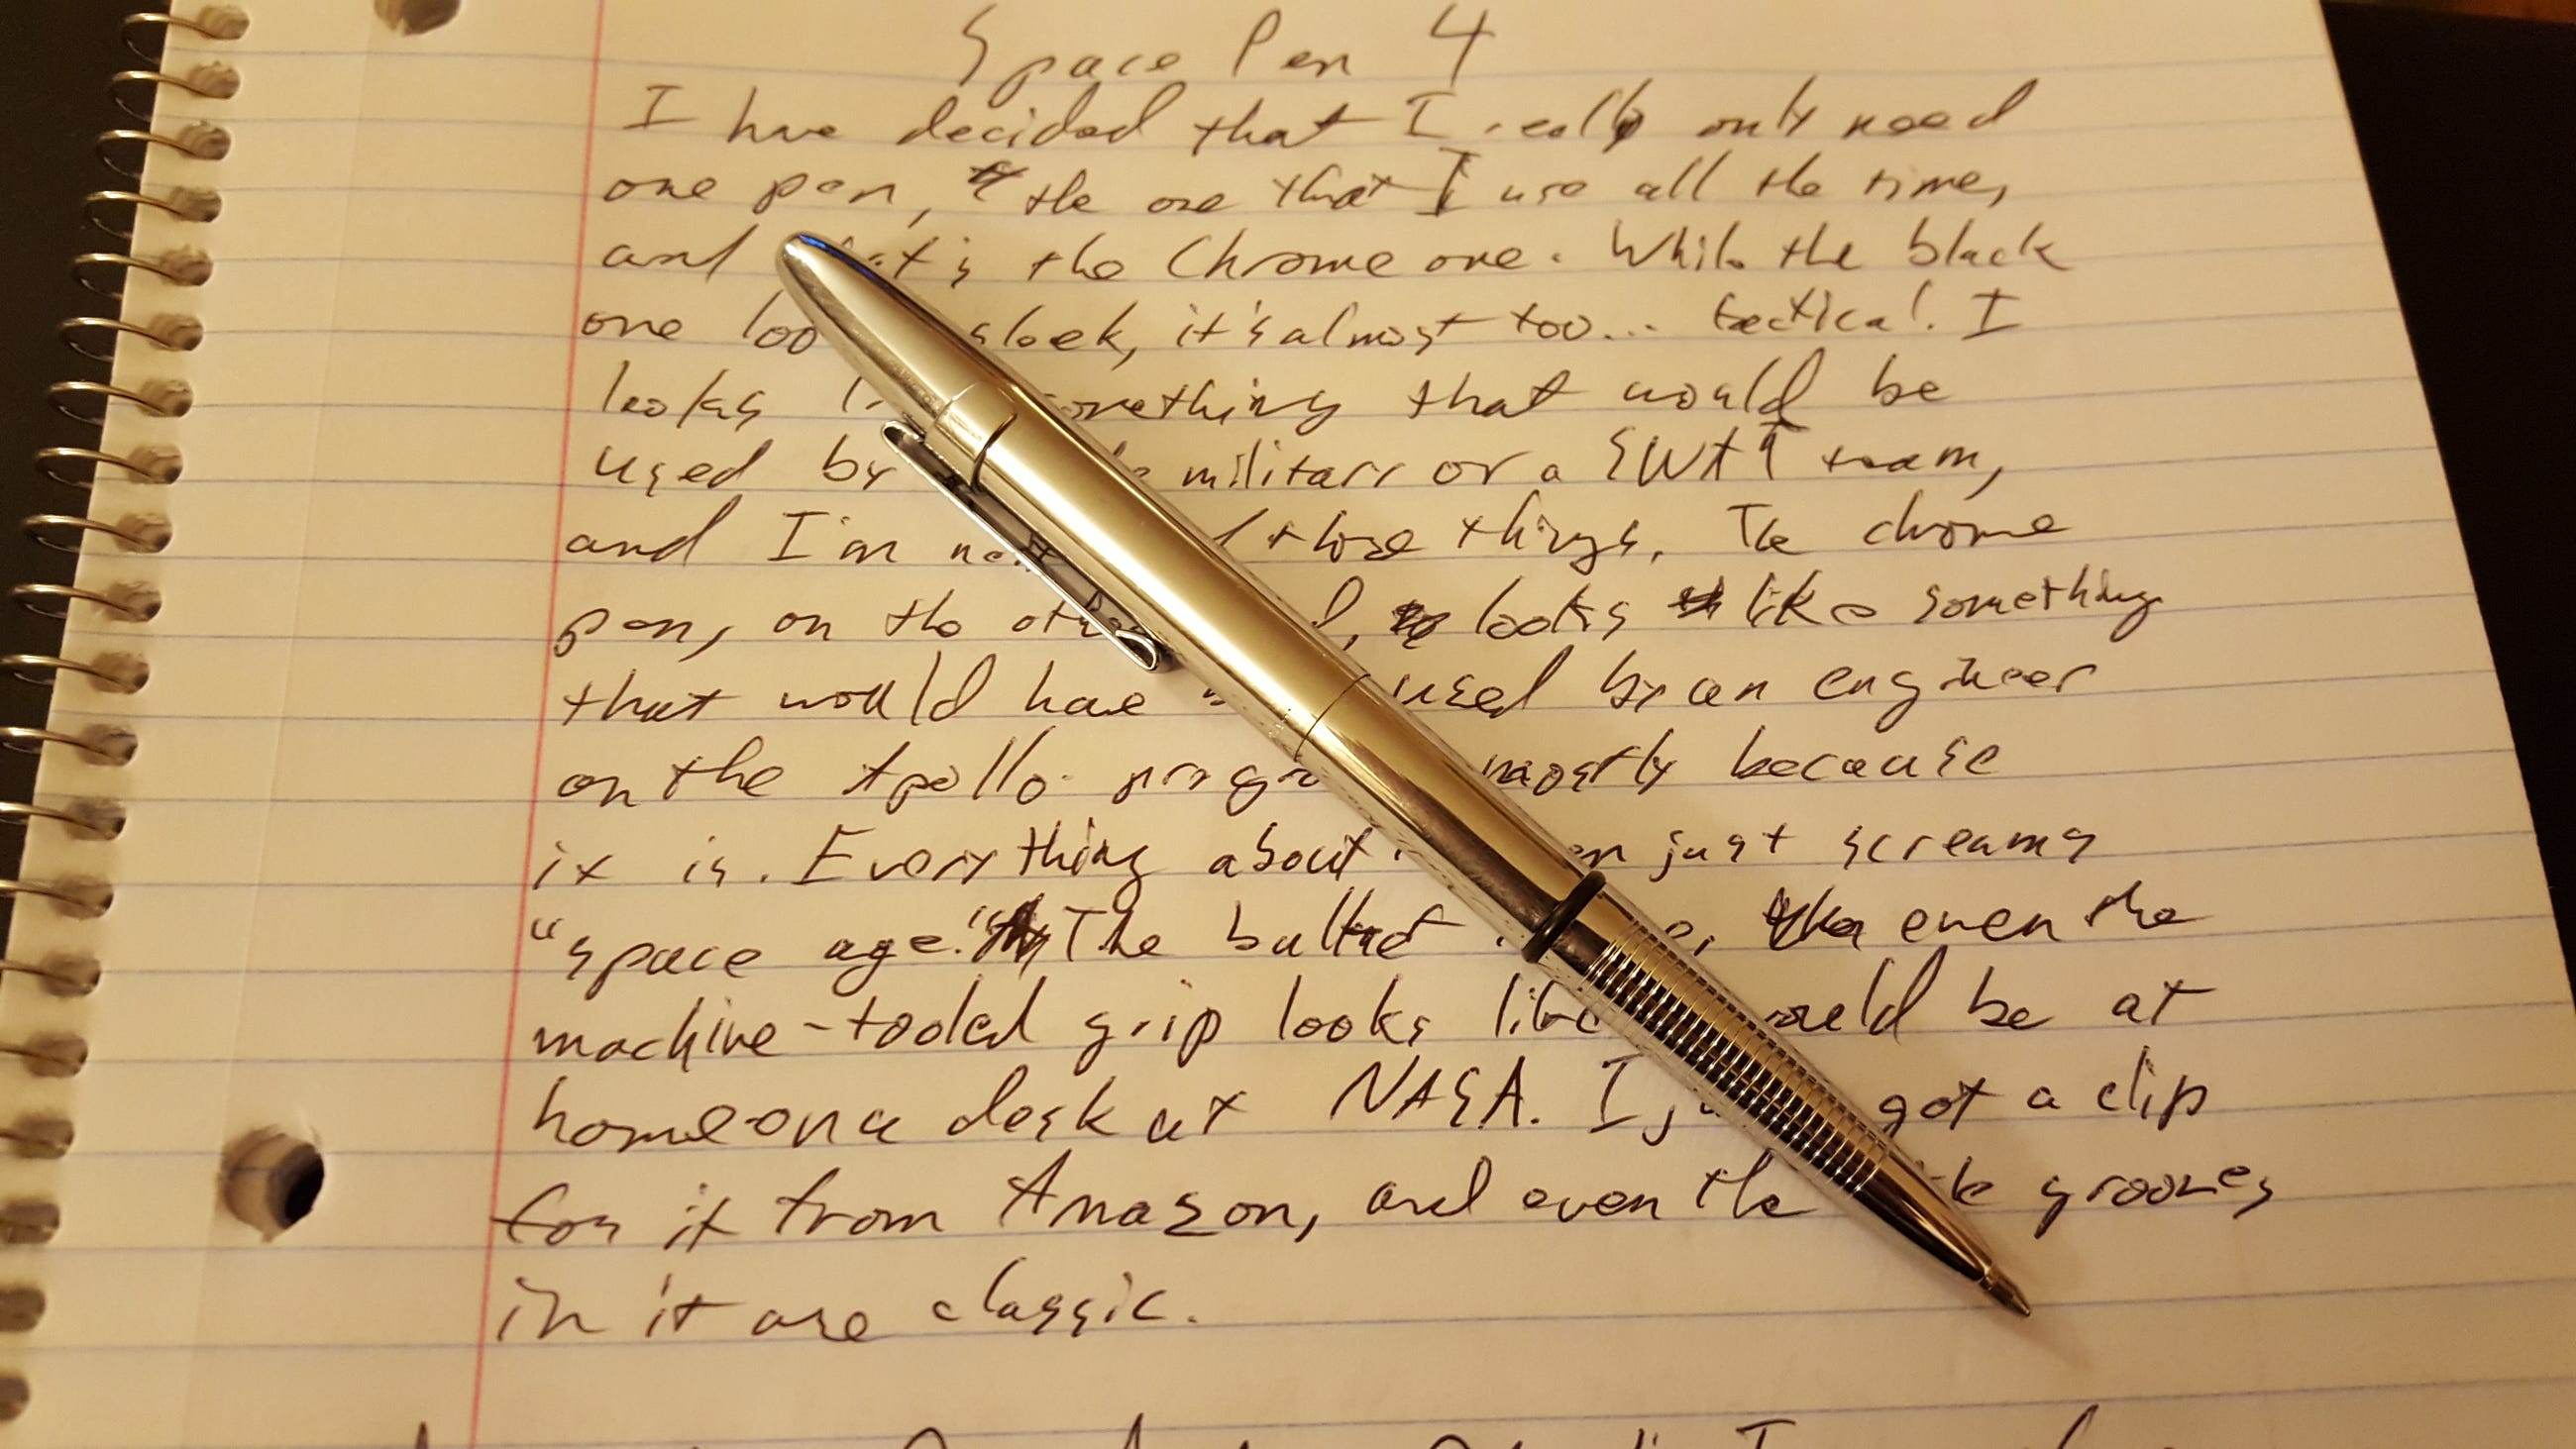 Space Pen 4
I have decided that I really only need
one pen, the one that I use all the time,
and is the Chrome one. While the black
one loo sleek, it's almost too... tactical. I
looks l something that would be
used by military or a SWAT team,
and I'm not those things. The chrome
pen, on the other looks like something
that would have used by an engineer
on the Apollo progra mostly because
it is. Everything about en just screams
"space age." The bullet even the
machine-tooled grip looks like ould be at
home on a desk at NASA. I ju got a clip
for it from Amazon, and even the grooves
in it are classic.